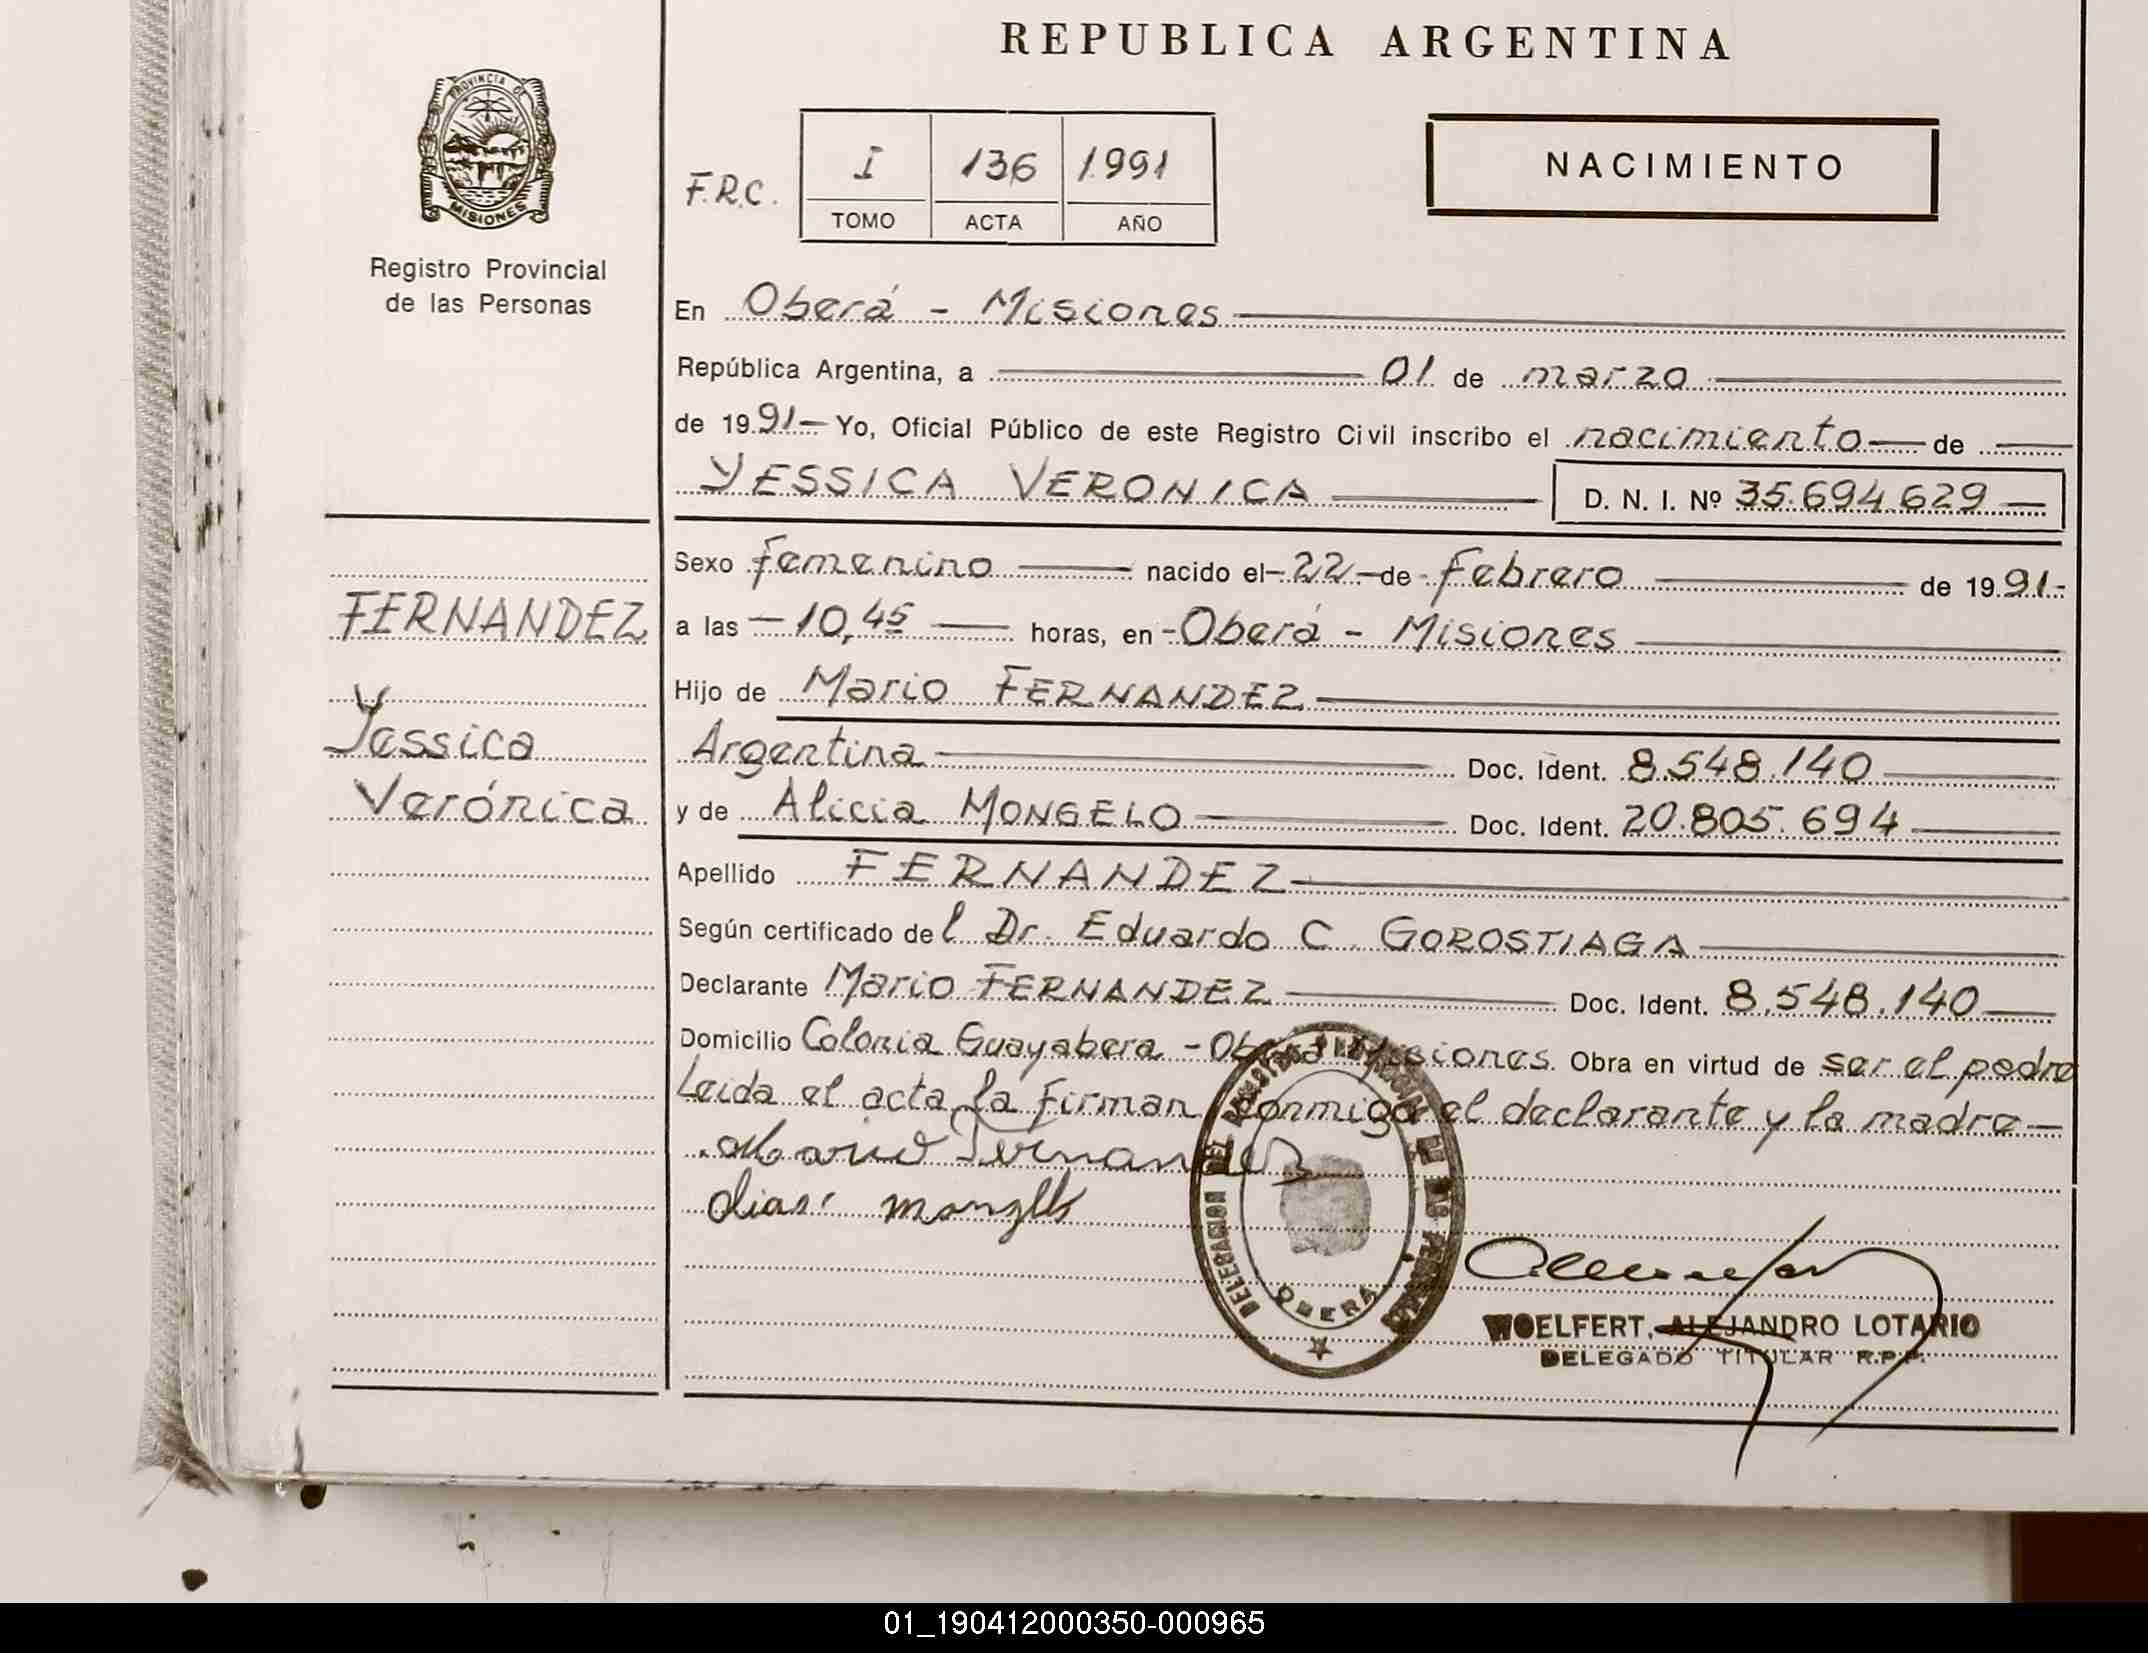 REPUBLICA ARGENTINA
PROVINCIA DE
MISIONES
Registro Provincial
de las Personas
F.R.C.
I 136 1991
TOMO ACTA AÑO
NACIMIENTO
En Oberá - Misiones
República Argentina, a 01 de marzo
de 1991- Yo, Oficial Público de este Registro Civil inscribo el nacimiento de
YESSICA VERONICA D. N. I. Nº 35.694.629
FERNANDEZ
Yessica
Verónica
Sexo femenino nacido el 22 de Febrero de 1991-
a las 10,45 horas, en Oberá - Misiones
Hijo de Mario FERNANDEZ
Argentina Doc. Ident. 8.548.140
y de Alicia MONGELO Doc. Ident. 20.805.694
Apellido FERNANDEZ
Según certificado del Dr. Eduardo C. GOROSTIAGA
Declarante Mario FERNANDEZ Doc. Ident. 8.548.140
Domicilio Colonia Guayabera - Oberá Misiones Obra en virtud de ser el padre
Leida el acta la firman conmigo el declarante y la madre
Mario Fernandez
DELEGACION DEL REGISTRO PROVINCIAL DE LAS PERSONAS
OBERA
WOELFERT, ALEJANDRO LOTARIO
DELEGADO TITULAR R.P.P.
01_190412000350-000965